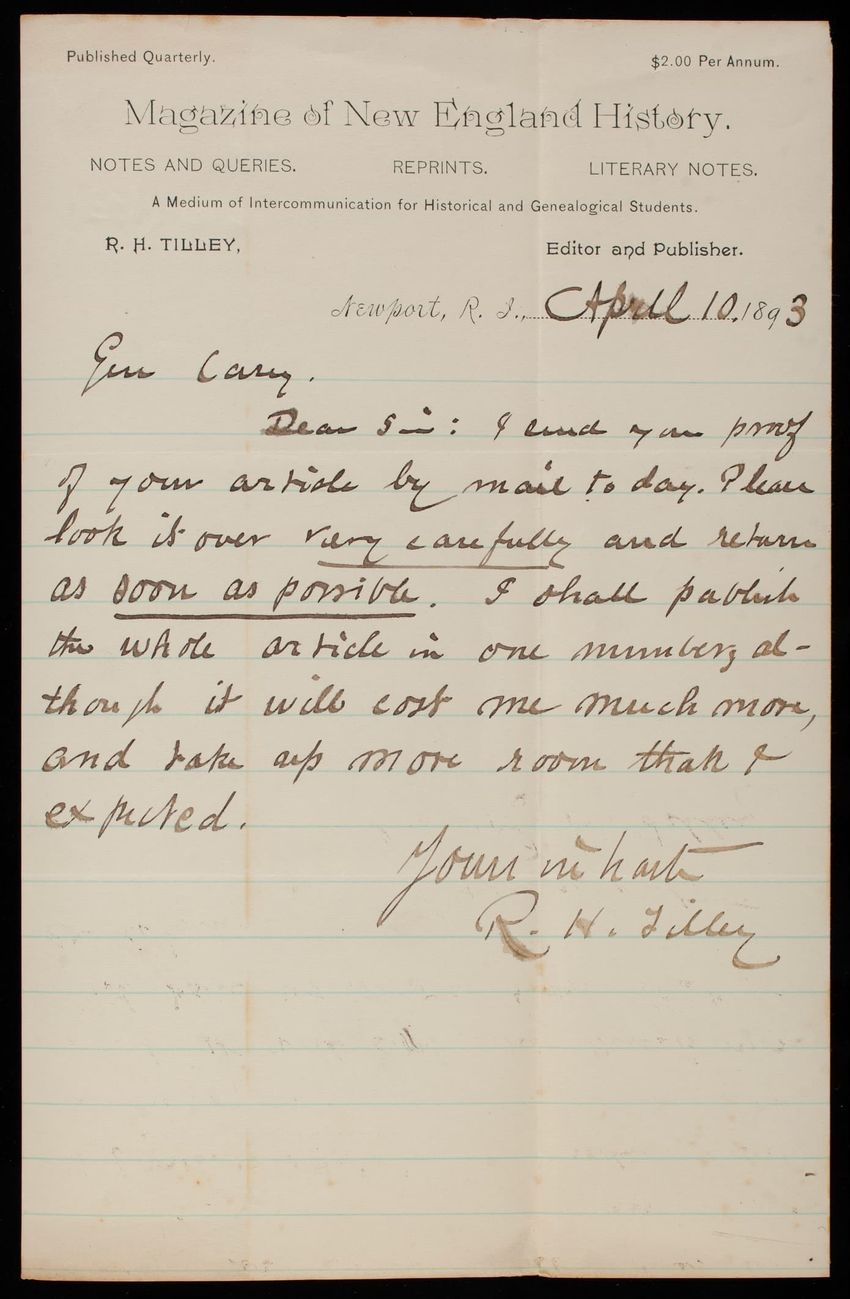 Published Quarterly. $2.00 Per Annum.
Magazine of New England History.
NOTES AND QUERIES. REPRINTS. LITERARY NOTES.
A Medium of Intercommunication for Historical and Genealogical Students.
R. H. TILLEY, Editor and Publisher.
Newport, R. I., April 10. 1893
Gen Casey.
Dear Sir: I send you proof
of your article by mail to day. Please
look it over very carefully and return
as soon as possible. I shall publish
the whole article in one number, al-
though it will cost me much more,
and take up more room than I
expected.
Yours in haste
R. H. Tilley